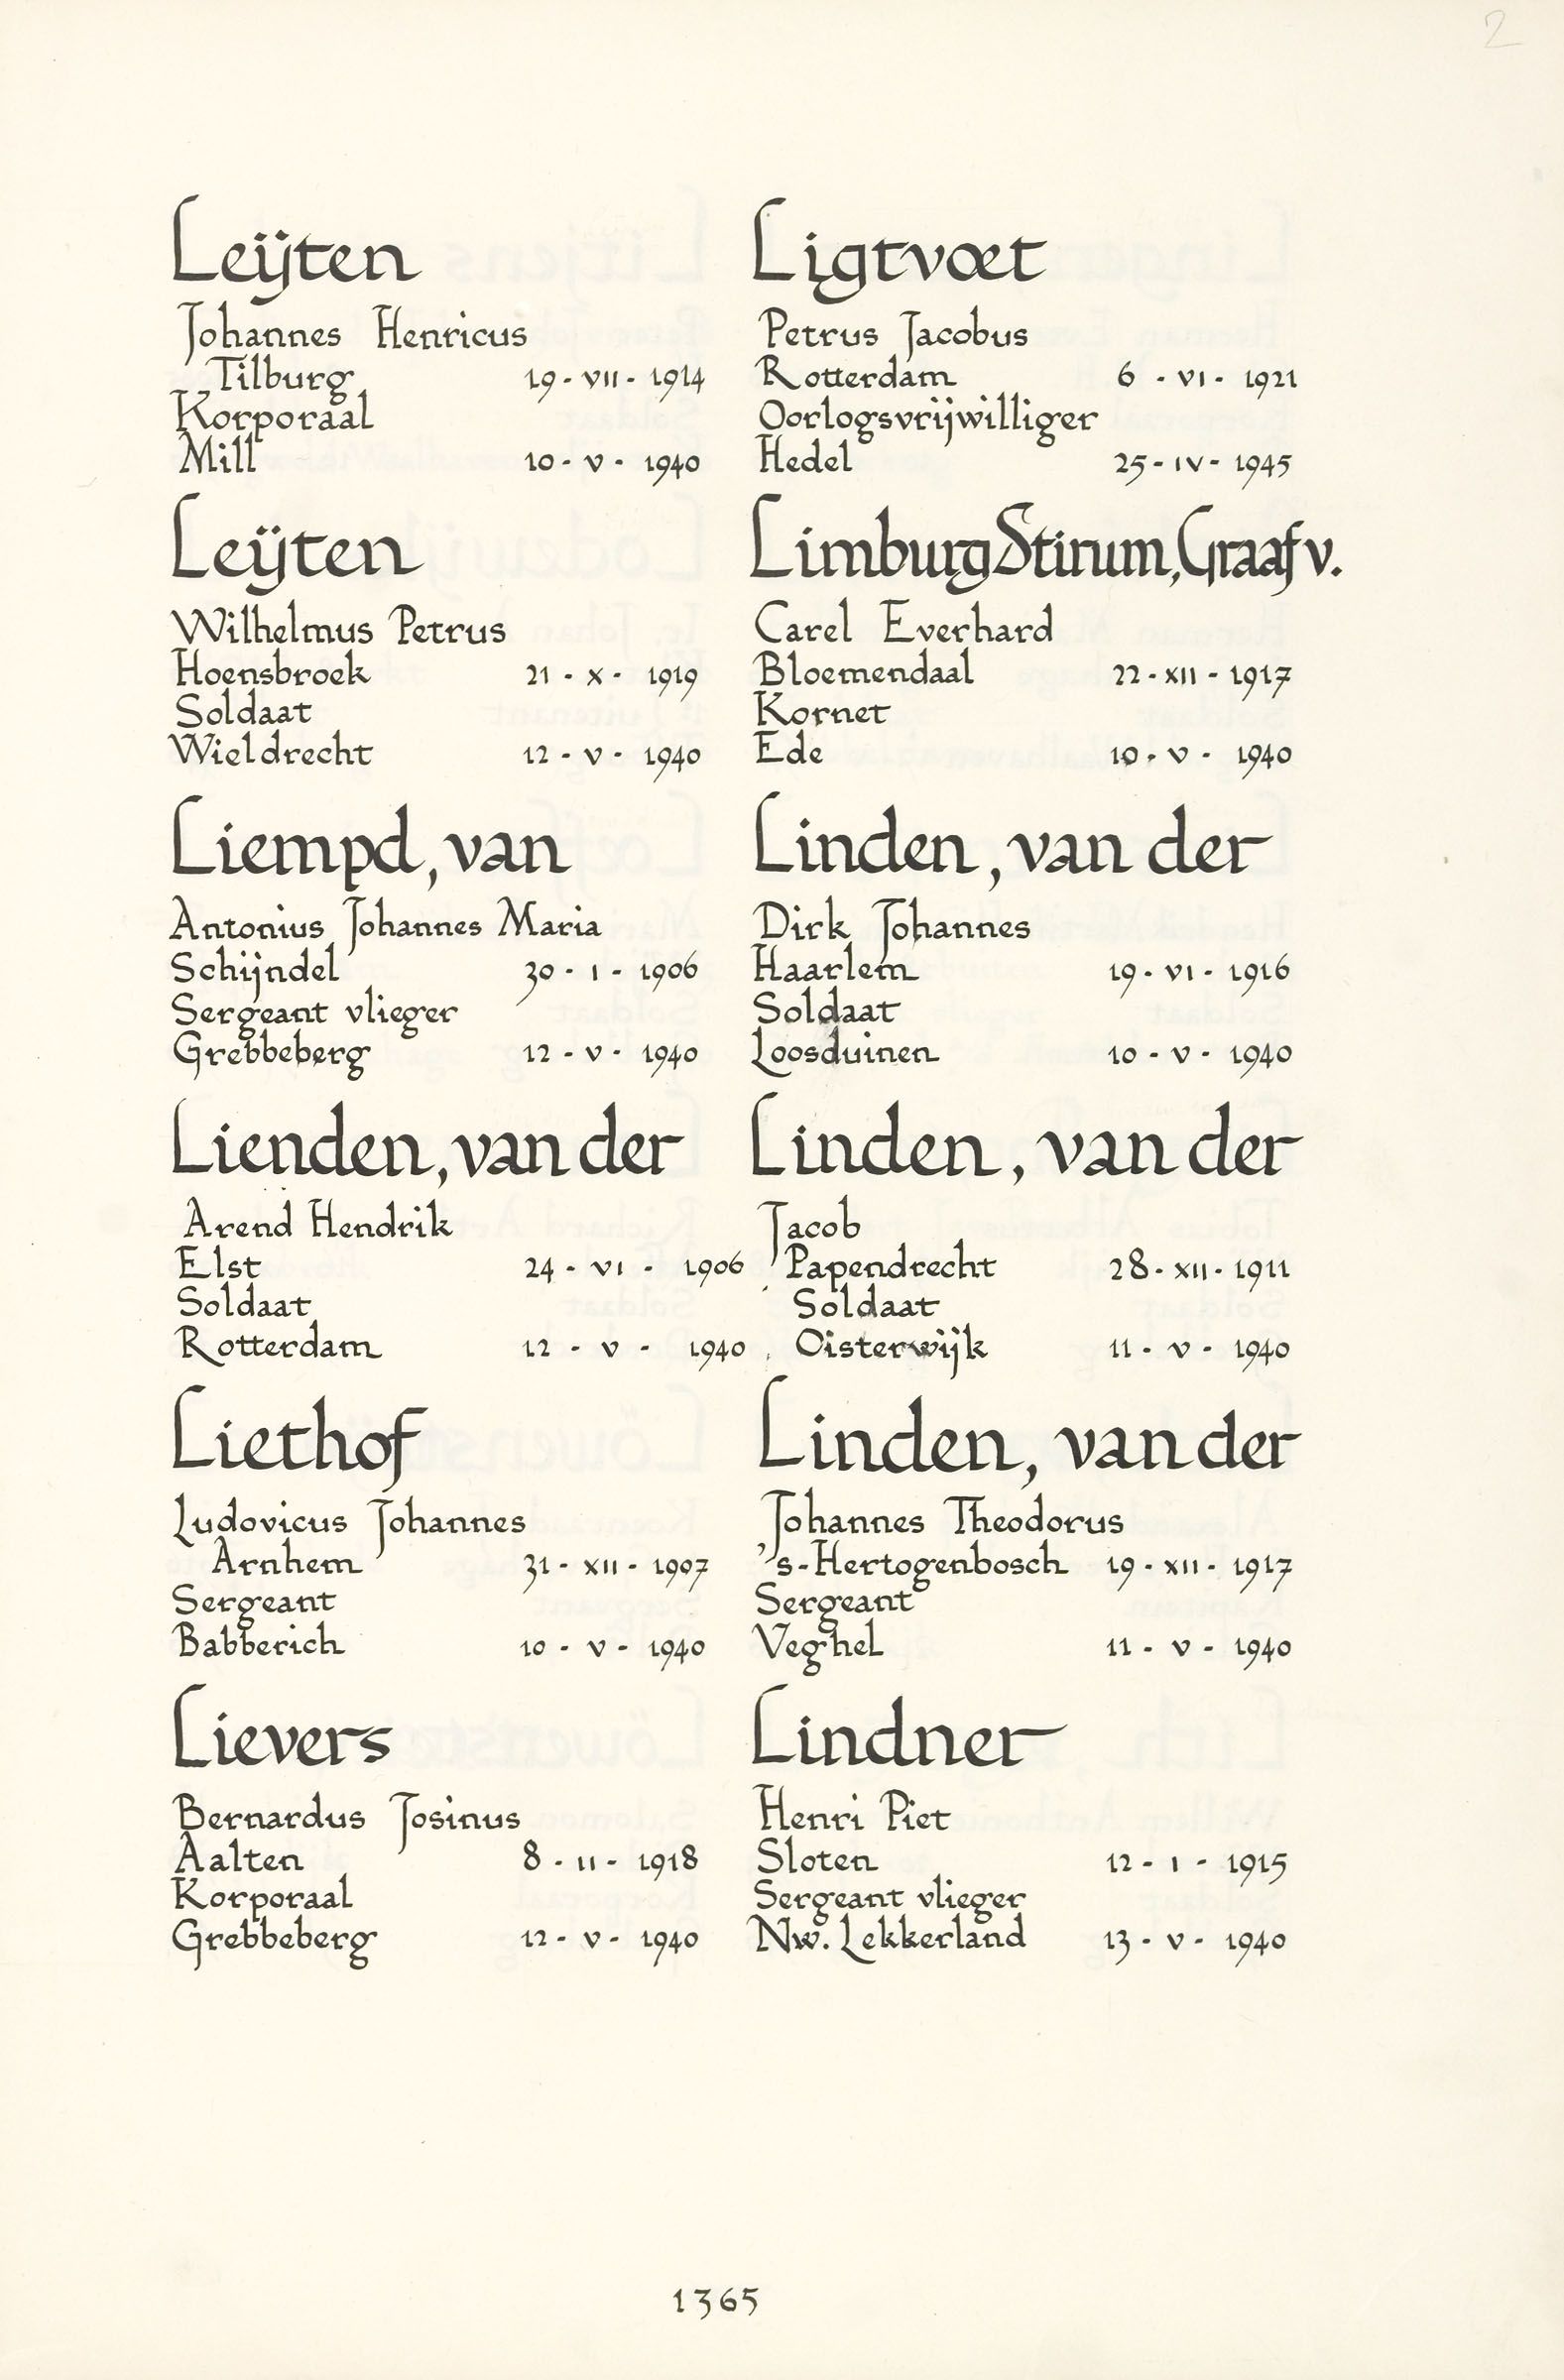 2
Leÿten
Johannes Henricus
Tilburg 19 - VII - 1914
Korporaal
Mill 10 - V - 1940
Leÿten
Wilhelmus Petrus
Hoensbroek 21 - X - 1919
Soldaat
Wieldrecht 12 - V - 1940
Liempd, van
Antonius Johannes Maria
Schijndel 30 - I - 1906
Sergeant vlieger
Grebbeberg 12 - V - 1940
Lienden, van der
Arend Hendrik
Elst 24 - VI - 1906
Soldaat
Rotterdam 12 - V - 1940
Liethof
Ludovicus Johannes
Arnhem 31 - XII - 1907
Sergeant
Babberich 10 - V - 1940
Lievers
Bernardus Josinus
Aalten 8 - II - 1918
Korporaal
Grebbeberg 12 - V - 1940
Ligtvoet
Petrus Jacobus
Rotterdam 6 - VI - 1921
Oorlogsvrijwilliger
Hedel 25 - IV - 1945
Limburg Stirum, Graaf v.
Carel Everhard
Bloemendaal 22 - XII - 1917
Kornet
Ede 10 - V - 1940
Linden, van der
Dirk Johannes
Haarlem 19 - VI - 1916
Soldaat
Loosduinen 10 - V - 1940
Linden, van der
Jacob
Papendrecht 28 - XII - 1911
Soldaat
Oisterwijk 11 - V - 1940
Linden, van der
Johannes Theodorus
's-Hertogenbosch 19 - XII - 1917
Sergeant
Veghel 11 - V - 1940
Lindner
Henri Piet
Sloten 12 - I - 1915
Sergeant vlieger
Nw. Lekkerland 13 - V - 1940
1365